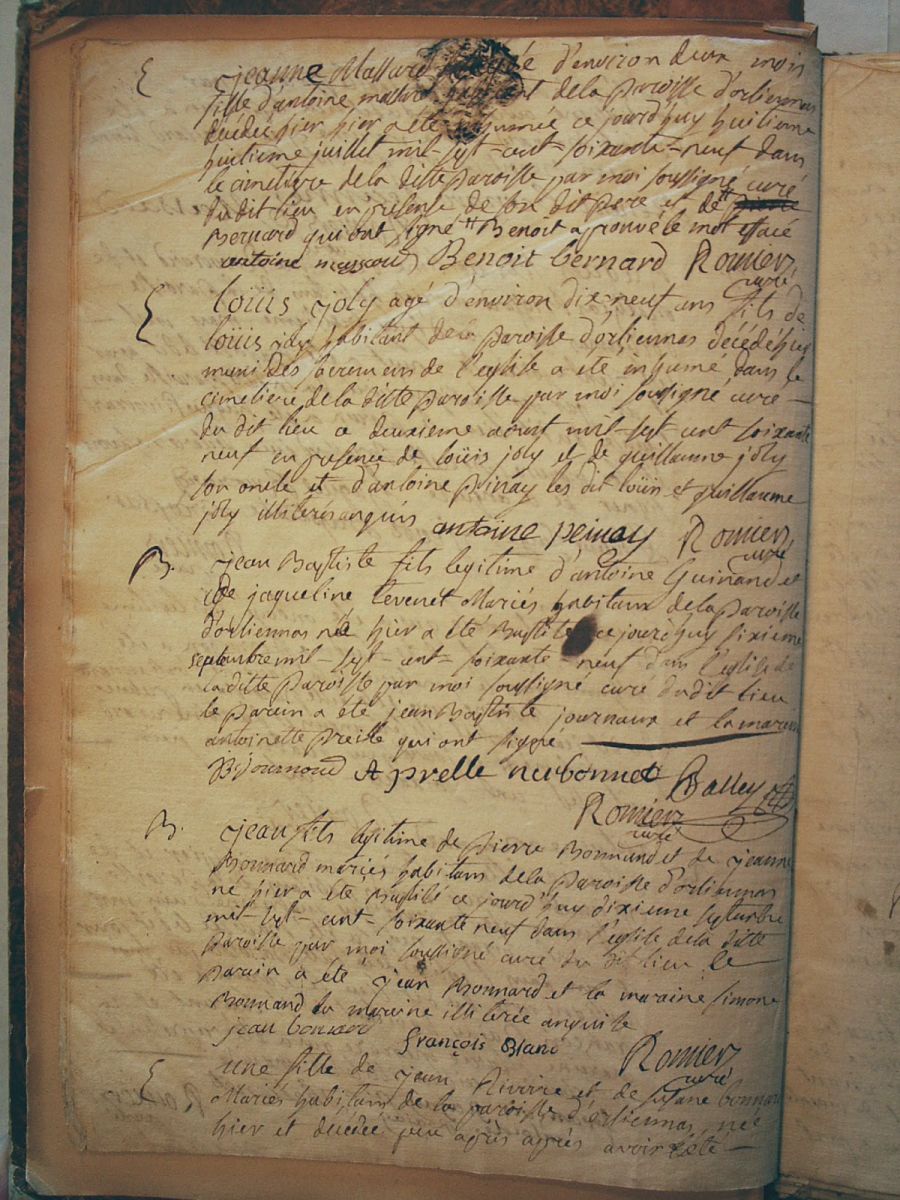 E jeanne Massard agée d'environ deux mois
fille d'antoine massard habitant de la paroisse d'orliennas
décédée hier hier a été inhumée ce jourd'huy huitieme
huitieme juillet mil-sept-cent-soixante-neuf dans
le cimetière de la ditte paroisse par moi soussigné curé
du dit lieu en presense de son dit pere et de
Bernard qui ont signé Benoit aprouvé le mot effacé
antoine Benoit bernard Romier
curé
E loüis joly agé d'environ dix-neuf ans fils de
loüis joly habitant de la paroisse d'orliennas décédé hier
muni des sacremens de l'eglise a été inhumé dans le
cimetiere de la ditte paroisse par moi soussigné curé
du dit lieu ce deuxieme aoust mil-sept-cent soixante
neuf en presence de loüis joly et de guillaume joly
son oncle et d'antoine pinay les dit loüis et guillaume
joly illiterés enquis antoine peinay Romier
curé
B. jean Baptiste fils legitime d'antoine Guinand et
de jaqueline Mariés habitans de la paroisse
d'orliennas né hier a été Baptisé ce jourd'huy sixieme
septembre mil-sept-cent-soixante neuf dans l'église de
la ditte paroisse par moi soussigné curé du dit lieu
le parain a été jean Baptiste journaux et la maraine
antoinette preille qui ont signé
A prelle nesbonnet Balley
Romier
curé
B. jean fils legitime de Pierre Bonnand et de jeanne
Bonnard mariés habitans de la paroisse d'orliennas
né hier a été Baptisé ce jourd'huy dixieme septembre
mil-sept-cent-soixante neuf dans l'église de la ditte
paroisse par moi soussigné curé du dit lieu le
parain a été jean Bonnard et la maraine simone
Bonnand la maraine illiterée enquise
jean bonnard françois Blanc Romier
curé
E une fille de jean Riviere et de susane bonnard
Mariés habitans de la paroisse d'orliennas, née
hier et decédée peu après après avoir été